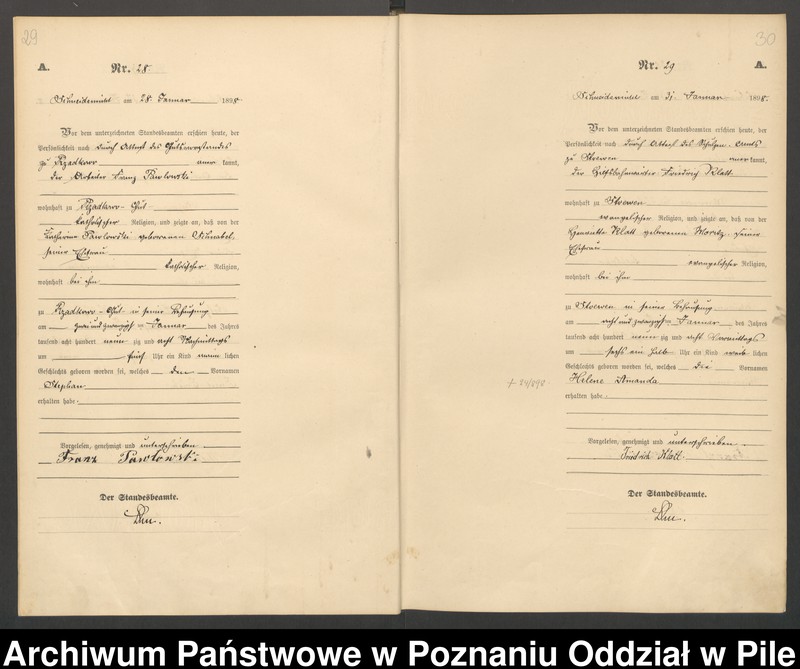 29
A.
Nr. 28.
Schneidemühl am 28. Januar 1898
Vor dem unterzeichneten Standesbeamten erschien heute, der
Persönlichkeit nach durch Attest des Gutsvorstandes
zu Rzadkowo anerkannt,
der Arbeiter Franz Pawlowski
wohnhaft zu Rzadkowo-Gut
katholischer Religion, und zeigte an, daß von der
Katharina Pawlowski geborenen Schnabel,
seiner Ehefrau
katholischer Religion,
wohnhaft bei ihm
zu Rzadkowo-Gut in seiner Behausung
am zweiundzwanzigsten Januar des Jahres
tausend acht hundert neunzig und acht Nachmittags
um fünf Uhr ein Kind männlichen
Geschlechts geboren worden sei, welches den Vornamen
Stephan
erhalten habe.
Vorgelesen, genehmigt und unterschrieben
Franz Pawlowski
Der Standesbeamte.
30
Nr. 29
A.
Schneidemühl am 31. Januar 1898.
Vor dem unterzeichneten Standesbeamten erschien heute, der
Persönlichkeit nach durch Attest des Schulzen-Amts
zu Stoewen anerkannt,
der Hilfsbahnwärter Friedrich Klatt
wohnhaft zu Stoewen
evangelischer Religion, und zeigte an, daß von der
Henriette Klatt geborenen Moritz, seiner
Ehefrau
evangelischer Religion,
wohnhaft bei ihm
zu Stoewen in seiner Behausung
am achtundzwanzigsten Januar des Jahres
tausend acht hundert neunzig und acht Vormittags
um sechs ein halb Uhr ein Kind weiblichen
Geschlechts geboren worden sei, welches die Vornamen
Helene Amanda
erhalten habe.
Vorgelesen, genehmigt und unterschrieben.
Friedrich Klatt.
Der Standesbeamte.
Archiwum Państwowe w Poznaniu Oddział w Pile